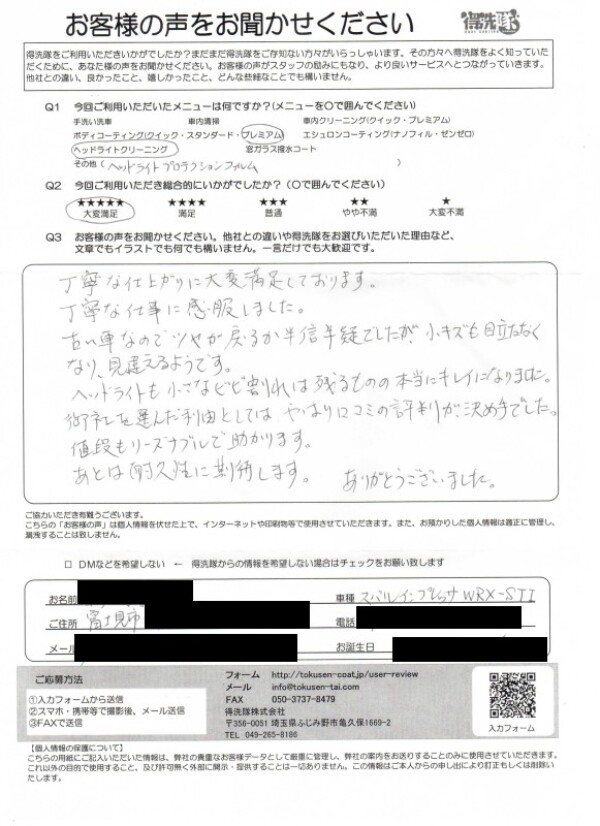 お客様の声をお聞かせください
得洗隊
得洗隊をご利用いただきいかがでしたか?まだまだ得洗隊をご存知ない方々がいらっしゃいます。その方々へ得洗隊をよく知っていた
だくために、あなた様の声をお聞かせください。お客様の声がスタッフの励みにもなり、より良いサービスへとつながっていきます。
他社との違い、良かったこと、嬉しかったこと、どんな些細なことでも構いません。
Q1 今回ご利用いただいたメニューは何ですか?(メニューを○で囲んでください)
手洗い洗車 車内清掃 車内クリーニング(クイック・プレミアム)
ボディコーティング(クイック・スタンダード・プレミアム) エシュロンコーティング(ナノフィル・ゼンゼロ)
ヘッドライトクリーニング 窓ガラス撥水コート
その他(ヘッドライトプロテクションフィルム)
Q2 今回ご利用いただき総合的にいかがでしたか?(○で囲んでください)
★★★★★ ★★★★ ★★★ ★★ ★
大変満足 満足 普通 やや不満 大変不満
Q3 お客様の声をお聞かせください。他社との違いや得洗隊をお選びいただいた理由など、
文章でもイラストでも何でも構いません。一言だけでも大歓迎です。
丁寧な仕上がりに大変満足しております。
丁寧な仕事に感服しました。
古い車なのでツヤが戻るか半信半疑でしたが、小キズも目立たなく
なり、見違えるようです。
ヘッドライトも小さなヒビ割れは残るものの本当にキレイになりました。
御社を選んだ理由としては やはり口コミの評判が決め手でした。
値段もリーズナブルで助かります。
あとは耐久性に期待します。 ありがとうございました。
ご協力いただき有難うございます。
こちらの「お客様の声」は個人情報を伏せた上で、インターネットや印刷物等で使用させていただきます。また、お預かりした個人情報は適正に管理し、
漏洩することは致しません。
□ DMなどを希望しない ← 得洗隊からの情報を希望しない場合はチェックをお願い致します
お名前 車種 スバルインプレッサ WRX-STI
ご住所 富士見市 電話
メール お誕生日
ご応募方法
①入力フォームから送信
②スマホ・携帯等で撮影後、メール送信
③FAXで送信
フォーム http://tokusen-coat.jp/user-review
メール info@tokusen-tai.com
FAX 050-3737-8479
得洗隊株式会社
〒356-0051 埼玉県ふじみ野市亀久保1669-2
TEL 049-265-8186
入力フォーム
【個人情報の保護について】
こちらの用紙にご記入いただいた情報は、弊社の貴重なお客様データとして厳重に管理し、弊社の案内をお送りすることのみに使用させていただきます。
これ以外の目的で使用すること、及び許可無く外部に開示・提供することは一切ありません。この情報はご本人からの申し出により訂正もしくは削除い
たします。